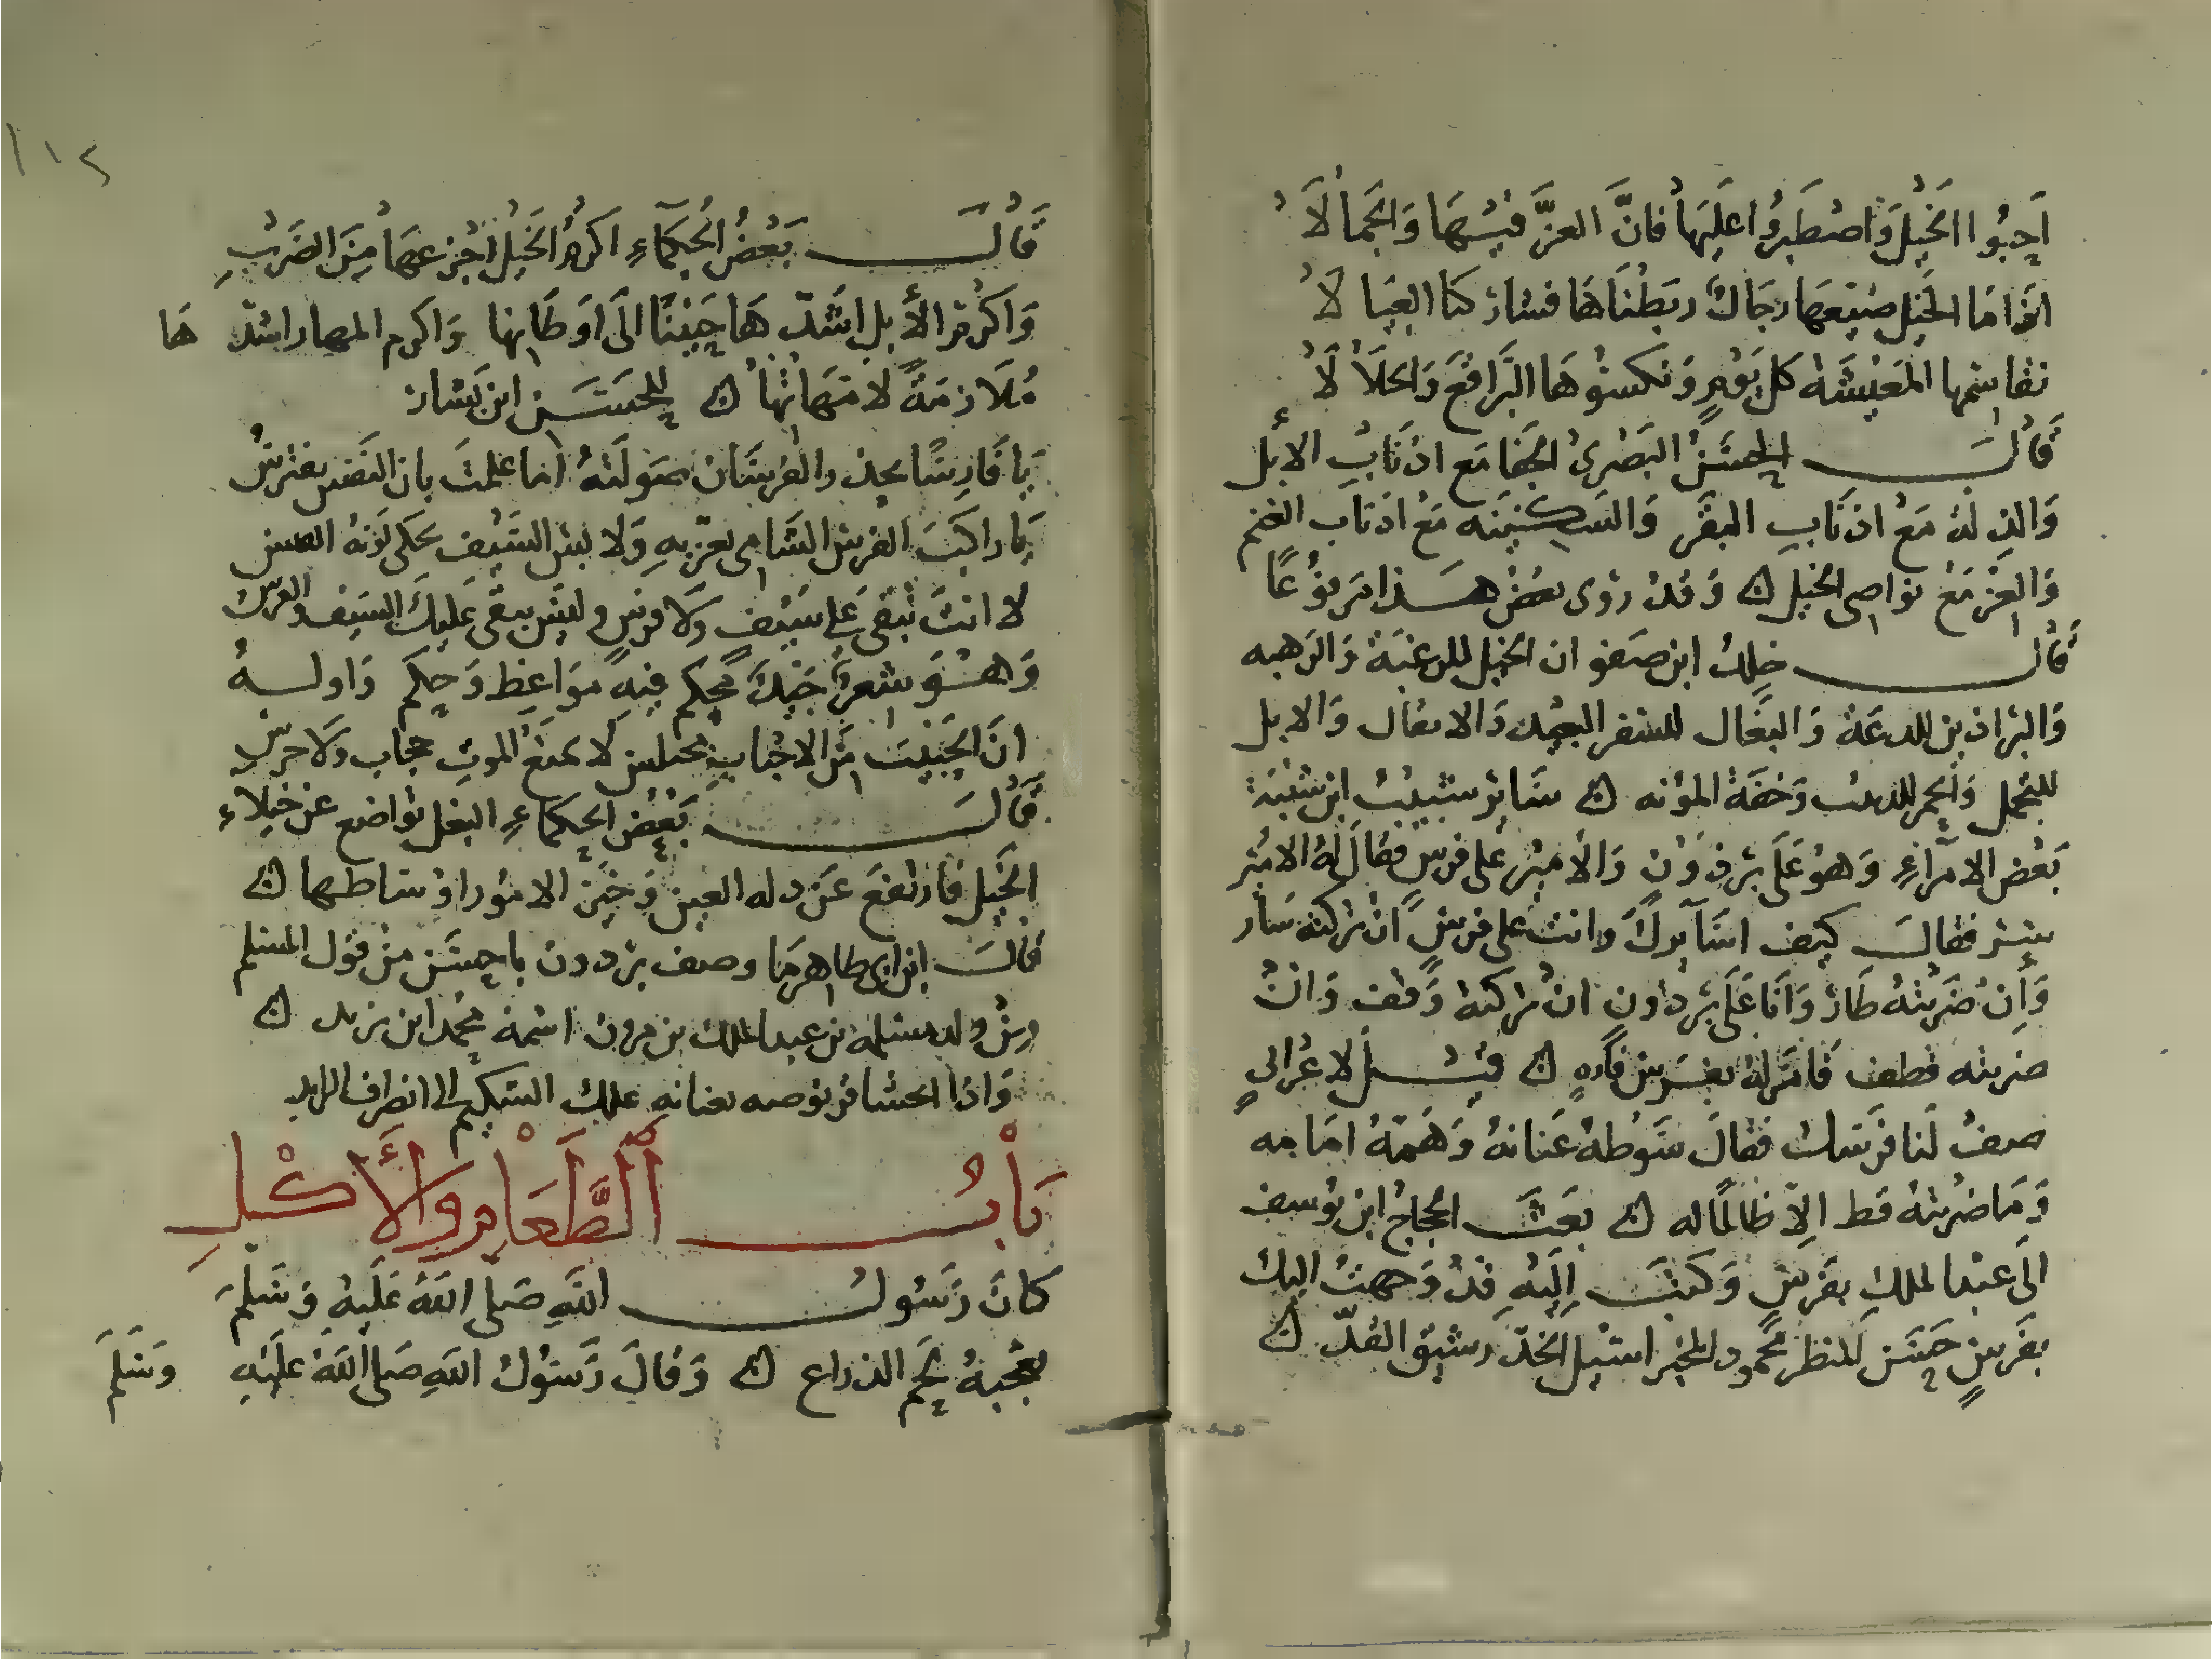 اَحِبُّوا الخَيْلَ وَاصْطَبِرُوا عليها فانَّ العِزَّ فيْها وَالجَمالَا
اذا مَا الخَيْل ضيّعها رجَالٌ ربَطْنَاهَا فشاركنا العِيَا لَا
نقاسمها المَعِيْشَة كل يَوْمٍ وَنكسُوهَا البَراقعَ وَالجلَالَا
قَالَ الحسَنُ البَصْرىُ الجفا مَع اذنَابِ الأبل
وَالذلة مَعْ اذنَابِ البقَر وَالسَكِينَه مَعْ اذناب الغنم
وَالعِزّ مَعْ نواصى الخيل ۞ وَقدْ رَوٰى بعضُ هـذا مَرفوعًا
قالَ خلد ابن صَفو ان الخيل للرغبَة وَالرَهبه
وَالبَراذين للدعَة وَالبغَال للسَفر البعيد وَالاثقال وَالابل
للتجمل وَالحمر للدبيب وَخفّة المؤنه ۞ سَايرَ شبيبُ ابن شيبَة
بَعْض الامَرآءِ وَهوُ عَلَى برْذَوْن وَالأميْر على فرسٍ فقالَ لهُ الاميْر
سِرْ فقالَ كيف اسَآيركَ وانتَ على فرسٍ انْ تركته سَار
وَأِنْ ضَربْتهُ طَارَ وَانَا عَلَى برْذون انْ تركته وَقف وَانْ
ضربته قطف فامَر لهُ بفرسٍ فَارهٍ ۞ قيْـل لاعْرابيٍ
صِفْ لَنا فرَسَك فقالَ سَوْطهُ عَنانهُ وَهَمّهُ امَامه
وَمَا ضرْبتهُ قط الاّ ظالمًا له ۞ بعَثَ الحجاجُ ابن يوُسف
الَى عَبْد الملكِ بفرَسٍ وَكتبَ إلَيْهِ قدْ وَجهتُ اليك
بفَرسٍ حَسَن المنظر محْمود المخبر اسَيْل الخَدّ رَشيْق القدّ ۞
١١٢
قَالَ بَعْضُ الحُكمآءِ اكرمُ الخَيْل اجْزعهَا مِنَ الضَرْبِ
وَاكرَم الأبل اشَدّ هَا حَنِيْنًا الَى اوَطَانها وَاكرم المهار اشدّ هَا
مُلَازمَةً لامّهَاتهَا ۞ للحَسَـن ابن بَشار
يَا فَارِسًا يحذر الفرسَان صَولَتهُ اما علمتَ بان النَفس يفترسُ
يَا راكبَ الفرس السَامى بعزّتهِ وَلابسَ السَيْف يحكى لَونهُ القبس
لا انتَ تبقى عَلى سَيْف وَلا فرسٍ وليْسَ يبقى عَليكَ السَيف والفرس
وَهـوَ شعرٌ جَيّدٌ محكم فيهِ موَاعظ وَحِكم وَاولـهُ
انّ الحَبيْبَ مِنَ الاحْبابِ مختلس لَا يمنعُ الموتَ حجاب وَلاحرس
قالَ بَعْض الحِكماءِ البغل تواضع عَنْ خيلاء
الخَيْل فارتفعَ عَنْ ذله العير وَخيْر الامُور اوسَاطها ۞
قالَ ابن ابى طاهر مَا وصف برذون باحسَن منْ قول المسْلم
مِنْ ولد مسْلمه بن عبد الملك بن مرون اسْمهُ محمد ابن يزيد ۞
وَاذا احتبا قربوصه بعنانهِ علك الشكيم الى انصراف الزاير
بَابُ ٱلطَّعَامِ وَالأَكْلِ
كانَ رَسُولُ اللّهِ صَلى اللّهُ عَلَيْهِ وَسَلمَ
يعْجبهُ لحَم الذراع ۞ وَقالَ رَسُولُ اللّهِ صَلى اللّهُ عَلَيْهِ وَسَلمَ